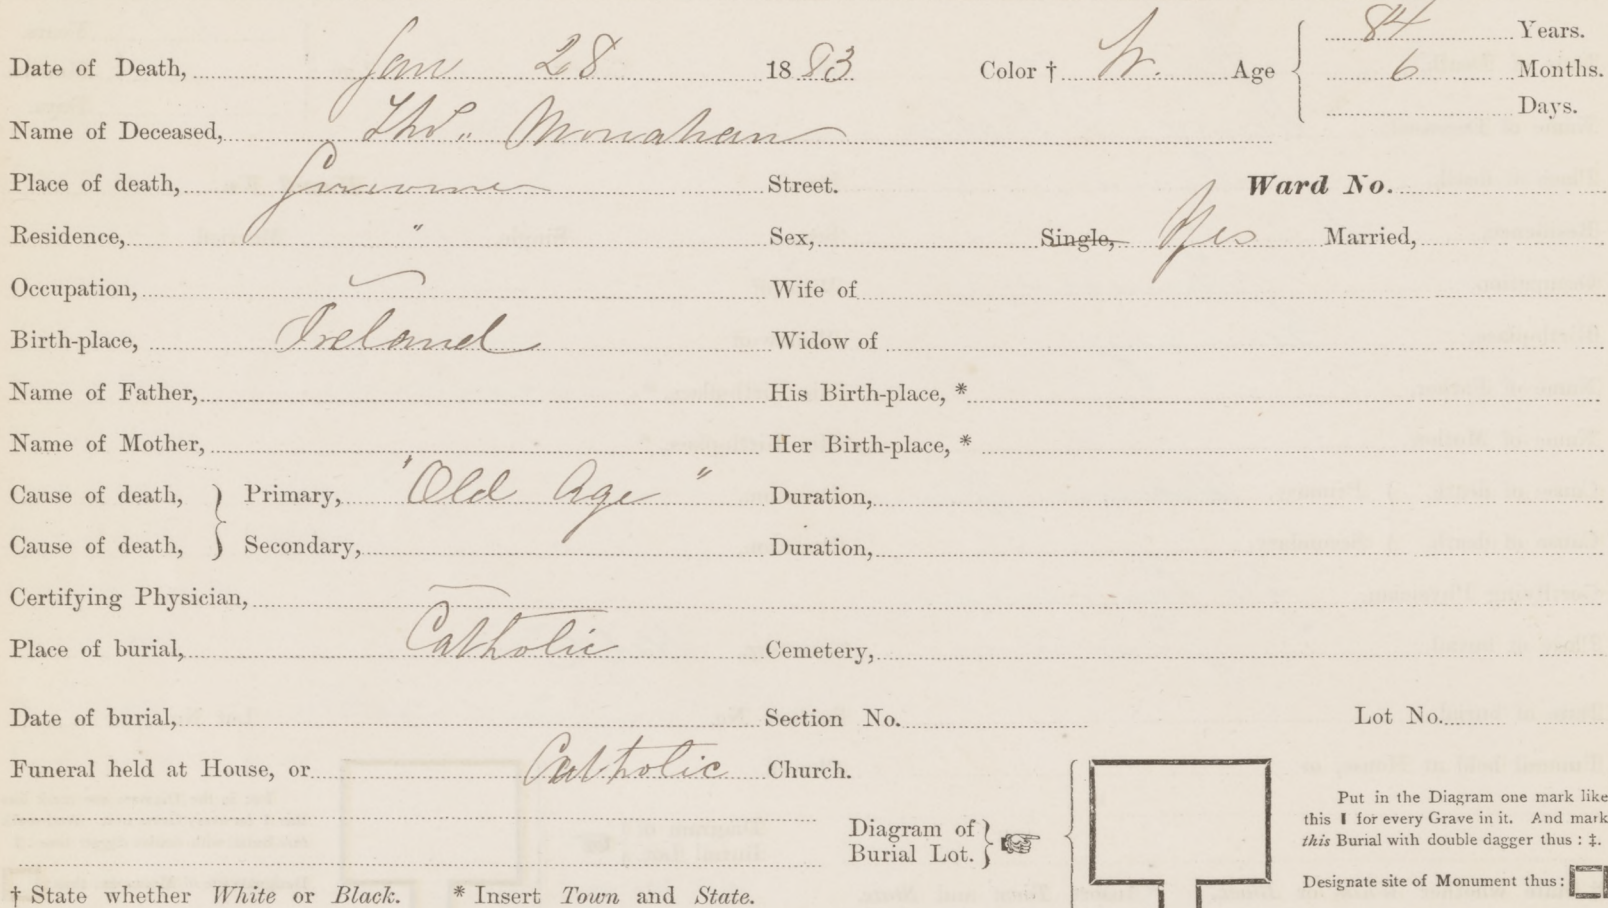 84 Years.
Date of Death, Jan 28 1883 Color † W. Age 6 Months.
Days.
Name of Deceased, Thos. Monahan
Place of death, Street. Ward No.
Residence, " Sex, Single, Yes Married,
Occupation, Wife of
Birth-place, Ireland Widow of
Name of Father, His Birth-place, *
Name of Mother, Her Birth-place, *
Cause of death, } Primary, "Old Age" Duration,
Cause of death, } Secondary, Duration,
Certifying Physician,
Place of burial, Catholic Cemetery,
Date of burial, Section No. Lot No.
Funeral held at House, or Catholic Church.
Put in the Diagram one mark like
this ❙ for every Grave in it. And mark
this Burial with double dagger thus : ‡.
Diagram of
Burial Lot.
Designate site of Monument thus:
† State whether White or Black. * Insert Town and State.